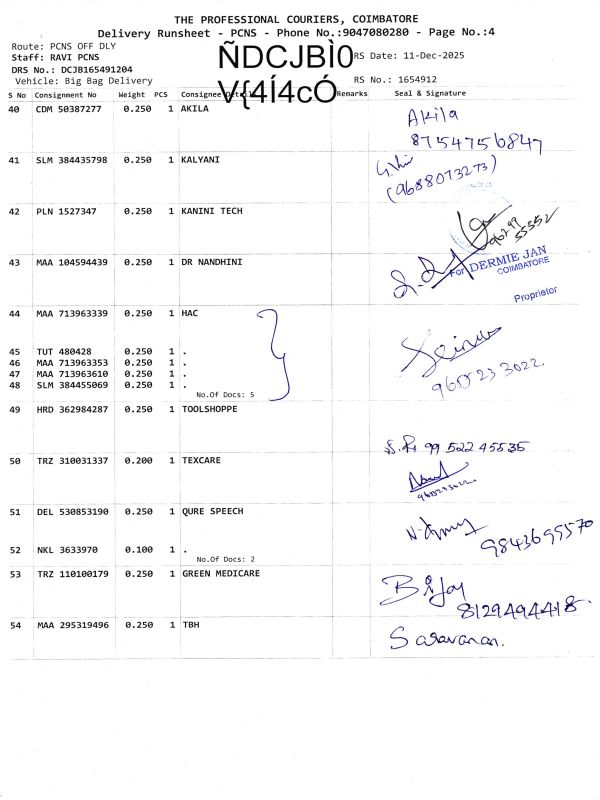 THE PROFESSIONAL COURIERS, COIMBATORE
Delivery Runsheet - PCNS - Phone No.:9047080280 - Page No.:4
Route: PCNS OFF DLY
Staff: RAVI PCNS
ÑDCJBÌ0
RS Date: 11-Dec-2025
DRS No.: DCJB165491204
V{4Í4cÓ
Vehicle: Big Bag Delivery
RS No.: 1654912
S No Consignment No Weight PCS Consignee Details Remarks Seal & Signature
40 CDM 50387277 0.250 1 AKILA
Akila
87547 56847
41 SLM 384435798 0.250 1 KALYANI
(9688073273)
42 PLN 1527347 0.250 1 KANINI TECH
96299
55352
43 MAA 104594439 0.250 1 DR NANDHINI
For DERMIE JAN
COIMBATORE
Proprietor
44 MAA 713963339 0.250 1 HAC
45 TUT 480428 0.250 1 .
46 MAA 713963353 0.250 1 .
47 MAA 713963610 0.250 1 .
48 SLM 384455069 0.250 1 .
960 23 3022
No.Of Docs: 5
49 HRD 362984287 0.250 1 TOOLSHOPPE
99 522 45535
50 TRZ 310031337 0.200 1 TEXCARE
51 DEL 530853190 0.250 1 QURE SPEECH
9843695570
52 NKL 3633970 0.100 1 .
No.Of Docs: 2
53 TRZ 110100179 0.250 1 GREEN MEDICARE
Bijoy
8129494418
54 MAA 295319496 0.250 1 TBH
Saravanan.